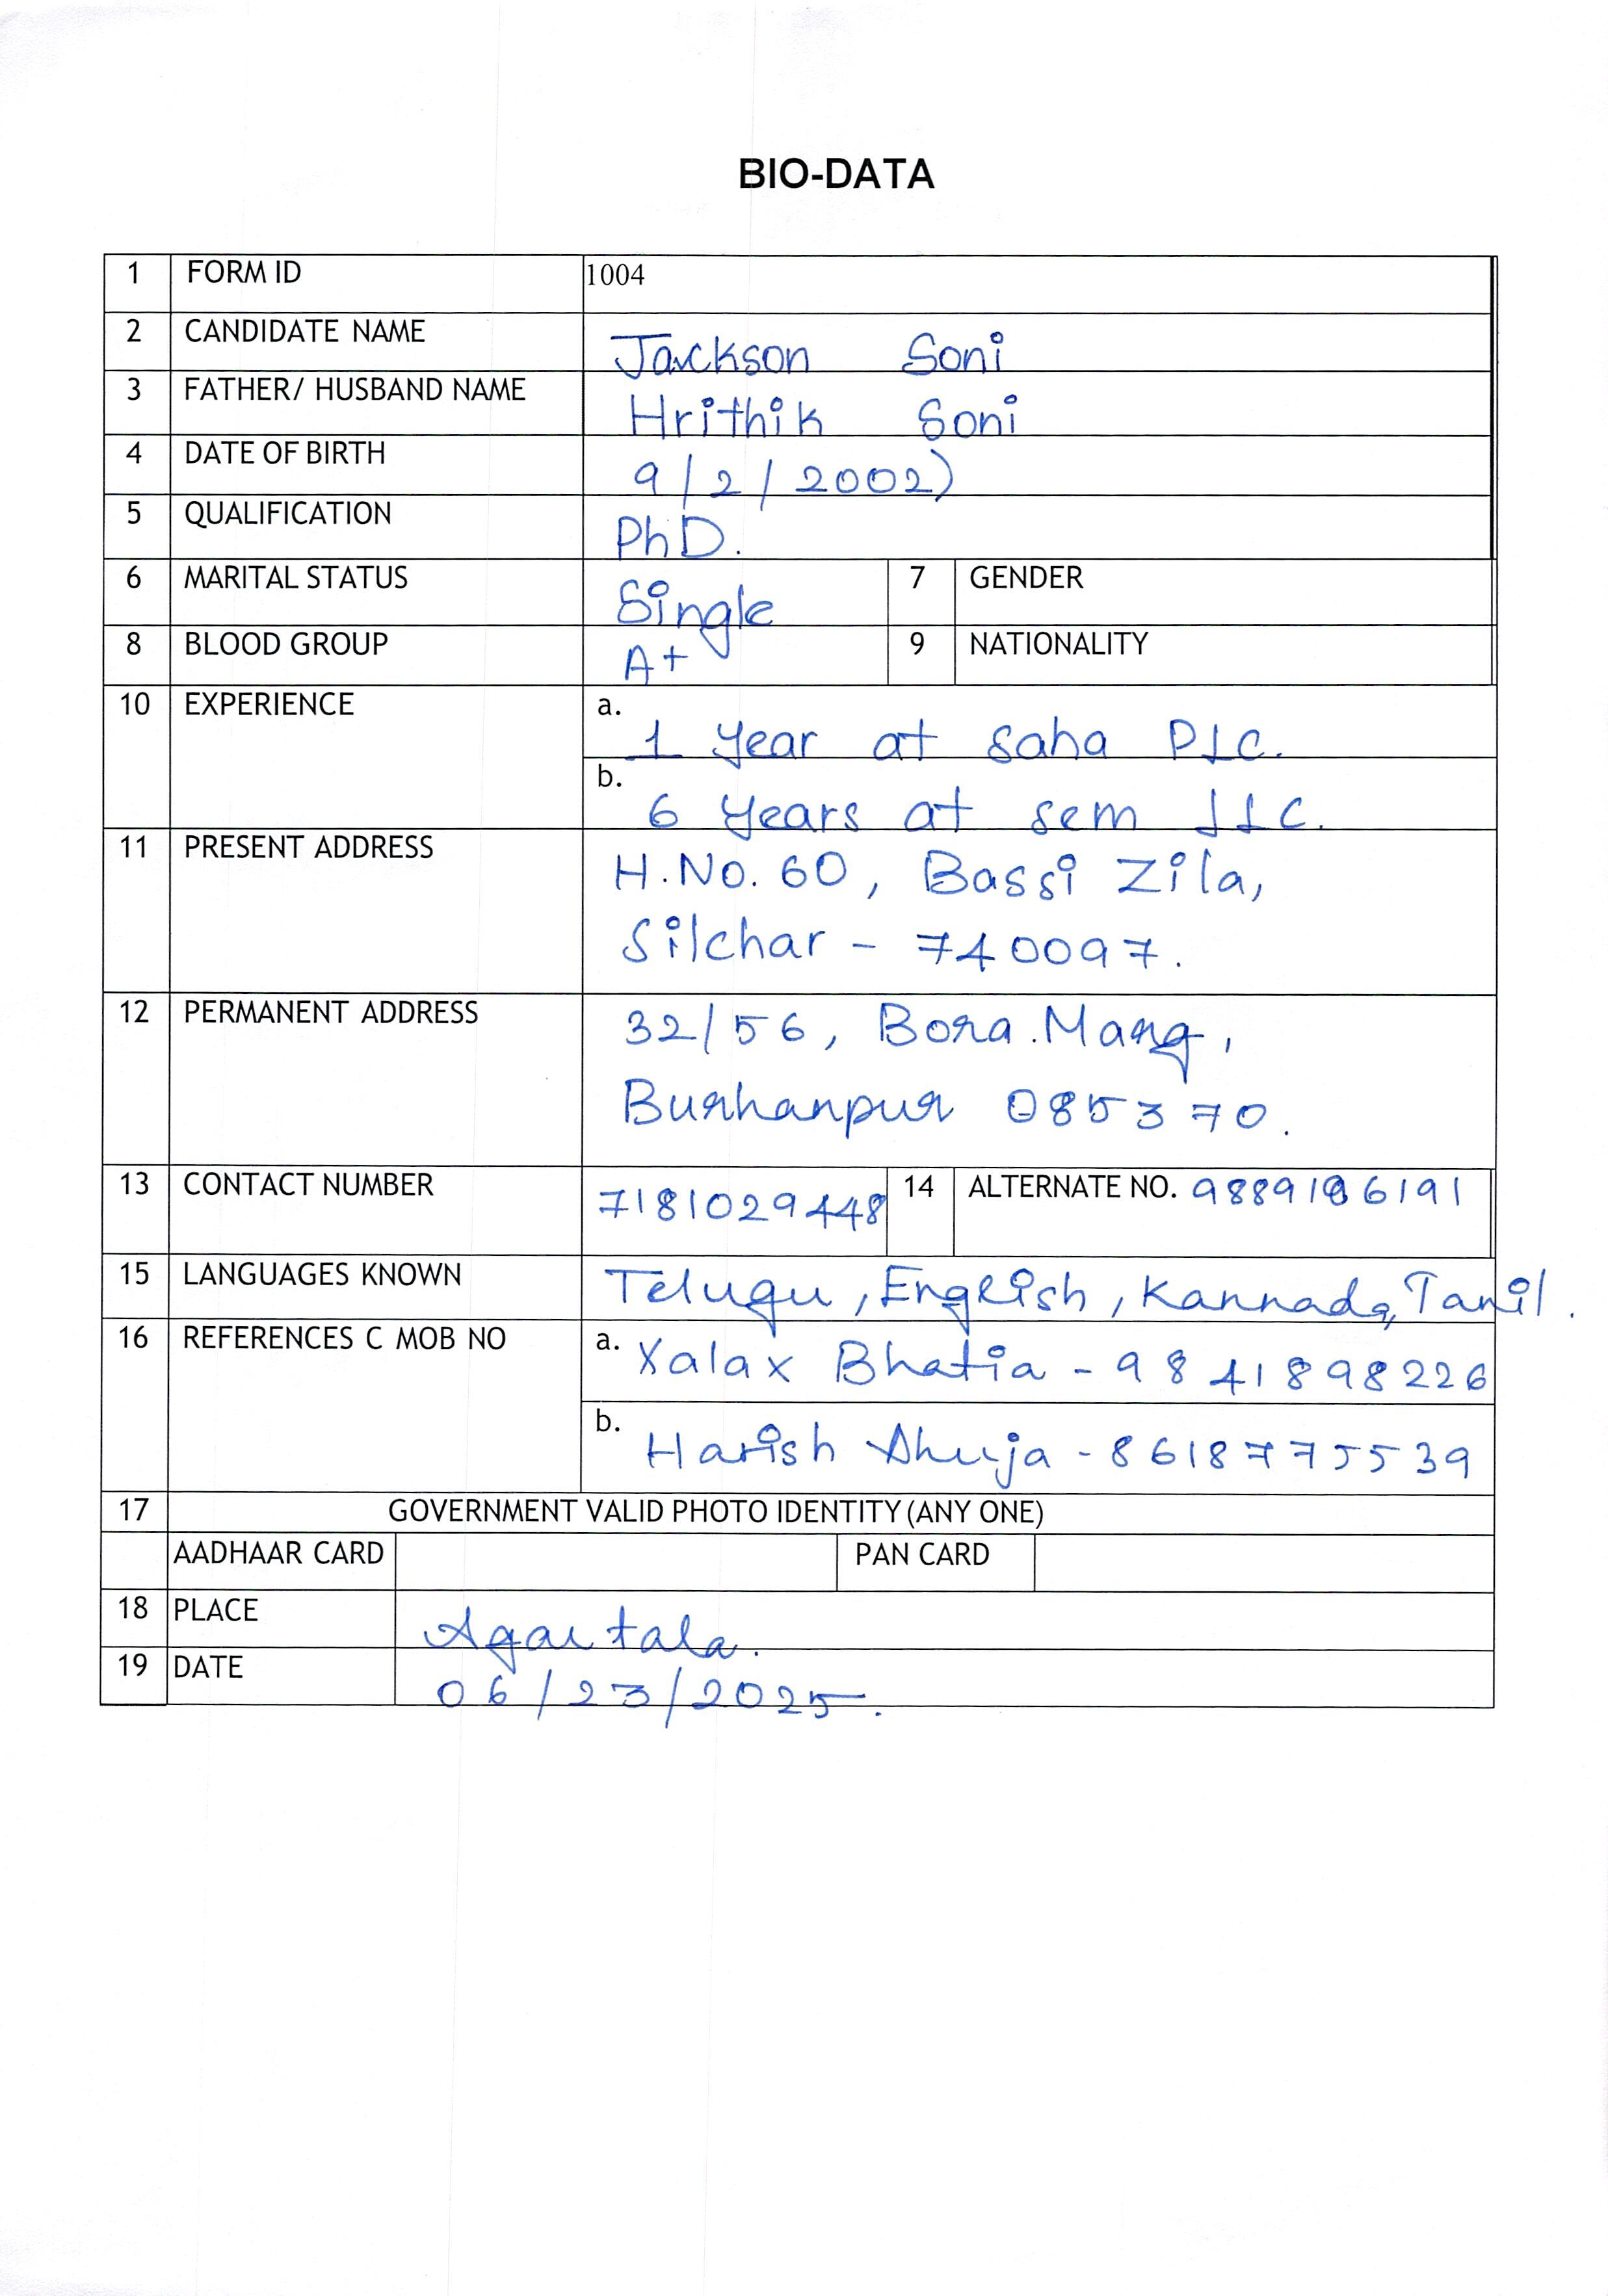 BIO-DATA
1 FORM ID 1004
2 CANDIDATE NAME Jackson Soni
3 FATHER/ HUSBAND NAME Hrithik Soni
4 DATE OF BIRTH 9/2/2002)
5 QUALIFICATION PhD.
6 MARITAL STATUS Single 7 GENDER
8 BLOOD GROUP A+ 9 NATIONALITY
10 EXPERIENCE a. 1 Year at saha PLC.
b. 6 Years at sem LLC.
11 PRESENT ADDRESS H.No. 60, Bassi Zila,
Silchar - 740097.
12 PERMANENT ADDRESS 32/56, Bora Marg,
Burhanpur 085370.
13 CONTACT NUMBER 7181029448 14 ALTERNATE NO.
15 LANGUAGES KNOWN Telugu, English, Kannada, Tamil.
16 REFERENCES C MOB NO a. Xalax Bhatia - 9841898226
b. Harish Ahuja - 8618775539
17 GOVERNMENT VALID PHOTO IDENTITY (ANY ONE)
AADHAAR CARD PAN CARD
18 PLACE Agartala.
19 DATE 06/23/2025.